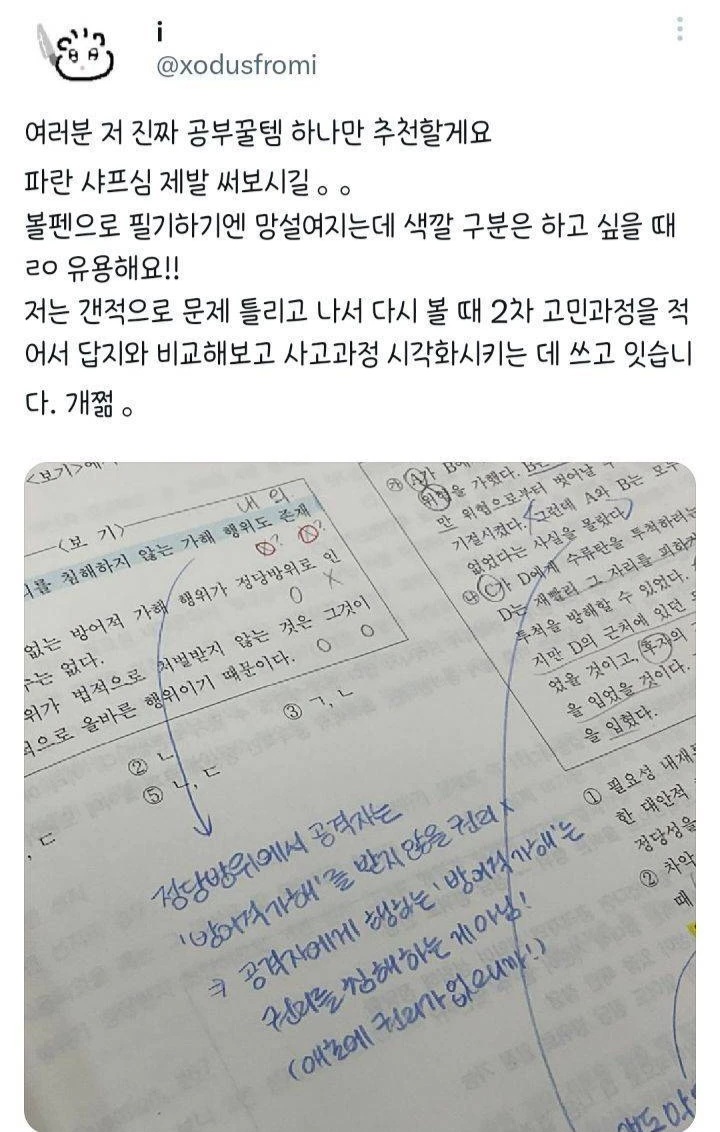 i
@xodusfromi
여러분 저 진짜 공부꿀템 하나만 추천할게요
파란 샤프심 제발 써보시길 。。
볼펜으로 필기하기엔 망설여지는데 색깔 구분은 하고 싶을 때
ㄹㅇ 유용해요!!
저는 갠적으로 문제 틀리고 나서 다시 볼 때 2차 고민과정을 적
어서 답지와 비교해보고 사고과정 시각화시키는 데 쓰고 잇습니
다. 개쩖 。
<보기>에
<보 기>
내 의
리를 침해하지 않는 가해 행위도 존재
? ?
없는 방어적 가해 행위가 정당방위로 인
수는 없다. O X
위가 법적으로 처벌받지 않는 것은 그것이
적으로 올바른 행위이기 때문이다. O O
② ㄴ ③ ㄱ, ㄴ
, ㄷ ⑤ ㄴ, ㄷ
정당방위에서 공격자는
'방어적가해'를 받지 않을 권리 x
→ 공격자에게 행하는 '방어적 가해'는
권리를 침해하는 게 아님!
(애초에 권리가 없으니까!)
㉮ A가 B에
위협을 가했다. B는
만 위협으로부터 벗어날
기절시켰다. 그런데 A와 B는 모두
없었다는 사실을 몰랐다.
㉯ C가 D에게 수류탄을 투척하려는
D는 재빨리 그 자리를 피하
투척을 방해할 수 있었다.
지만 D의 근처에 있던
었을 것이고, 후자의
을 입었을 것이다.
을 입혔다.
① 필요성 내재
한 대안적
정당성을
② 차악
때